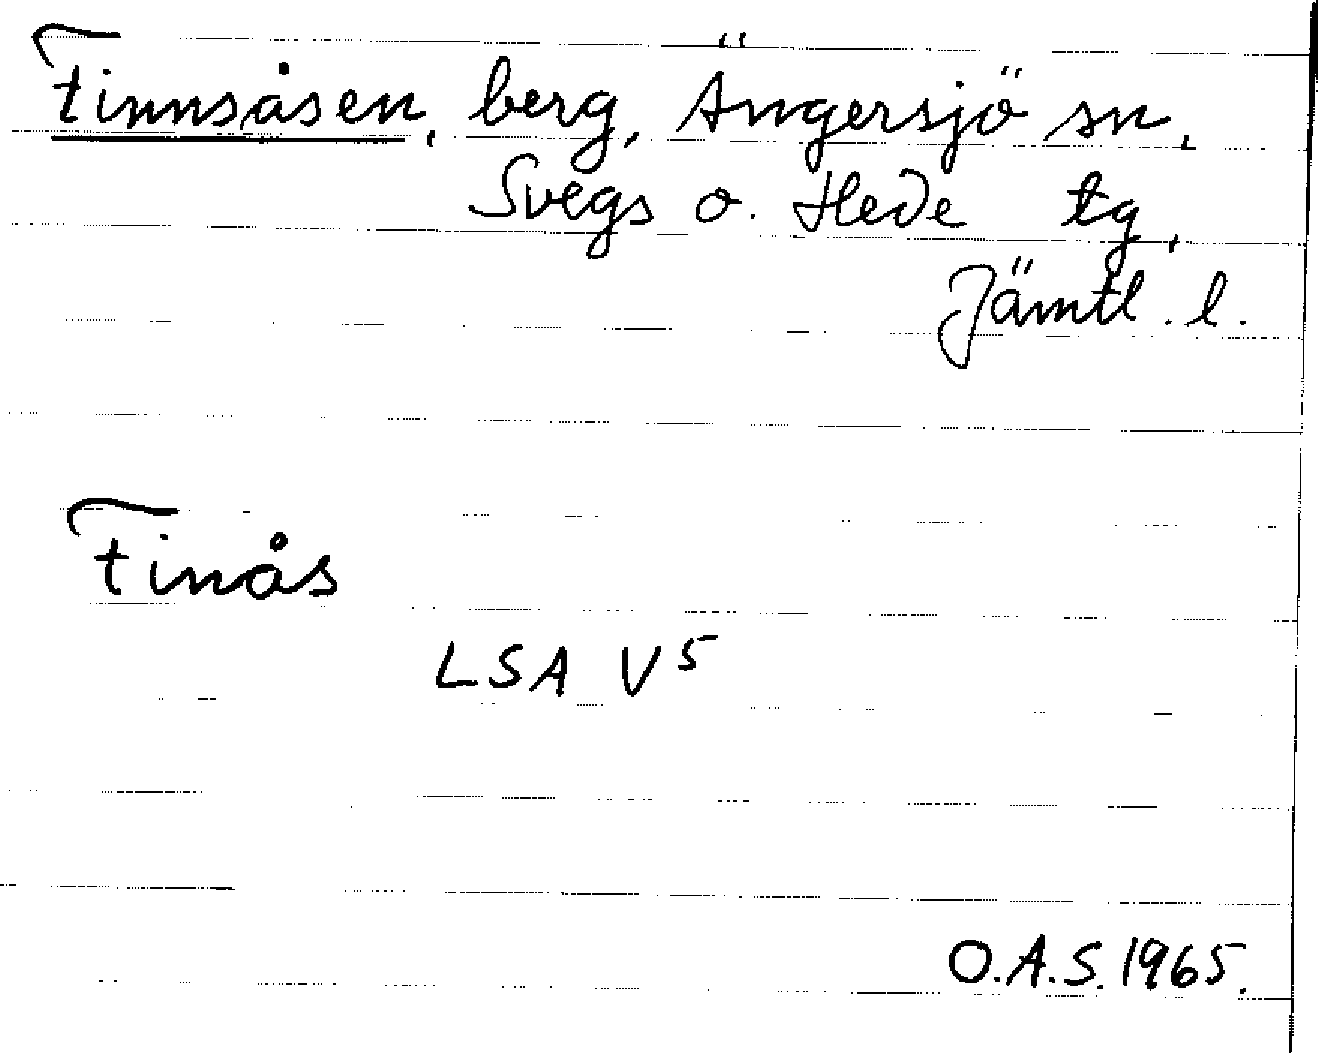 Finnsåsen, berg, Ängersjö sn,
Svegs o. Hede tg,
Jämtl. l.
Finås
LSA V5
O.A.S. 1965.